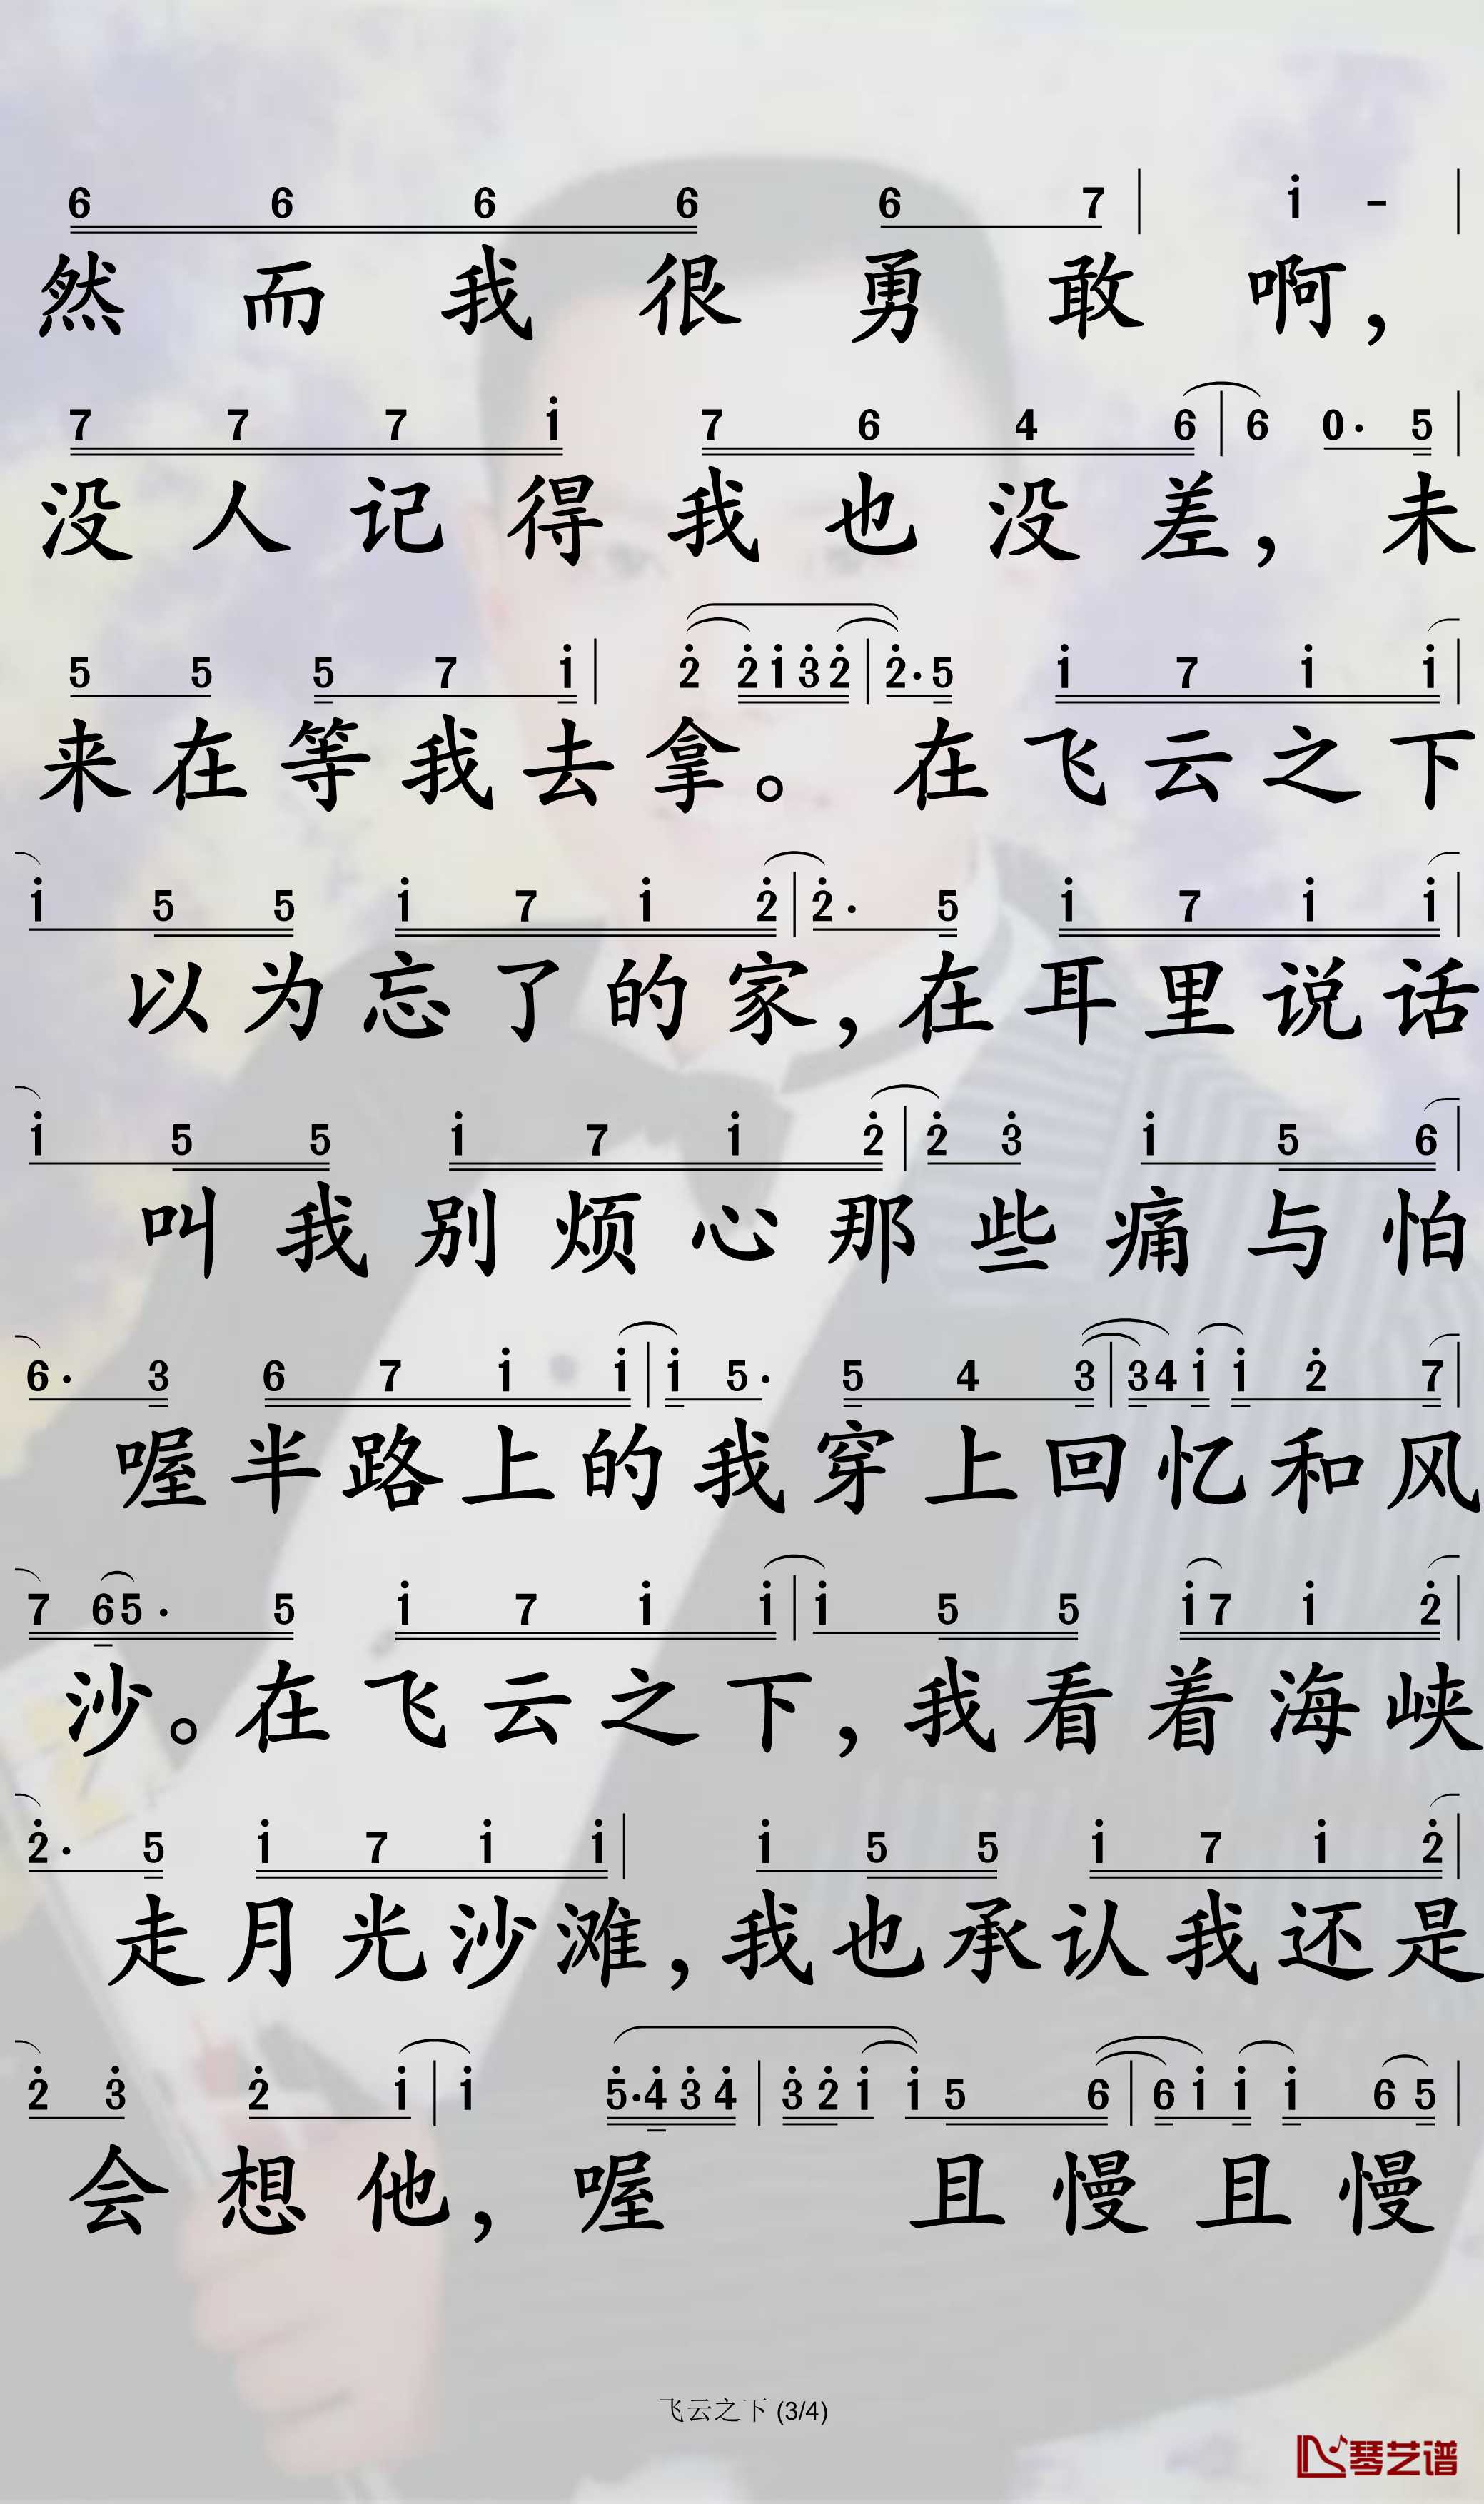 6 6 6 6 6 7 | i - |
然而我很勇敢啊，
7 7 7 i 7 6 4 6 | 6 0· 5 |
没人记得我也没差，未
5 5 5 7 i | 2̇ 2̇ i 3̇ 2̇ | 2̇· 5 i 7 i i |
来在等我去拿。在飞云之下
i 5 5 i 7 i 2̇ | 2̇· 5 i 7 i i |
以为忘了的家，在耳里说话
i 5 5 i 7 i 2̇ | 2̇ 3̇ i 5 6 |
叫我别烦心那些痛与怕
6· 3 6 7 i i | i 5· 5 4 3 | 3 4 i i 2̇ 7 |
喔半路上的我穿上回忆和风
7 6 5· 5 i 7 i i | i 5 5 i 7 i 2̇ |
沙。在飞云之下，我看着海峡
2̇· 5 i 7 i i | i 5 5 i 7 i 2̇ |
走月光沙滩，我也承认我还是
2̇ 3̇ 2̇ i | i 5̇· 4̇ 3̇ 4̇ | 3̇ 2̇ i i 5 6 | 6 i i i 6 5 |
会想他，喔 且慢且慢
飞云之下 (3/4)
琴艺谱